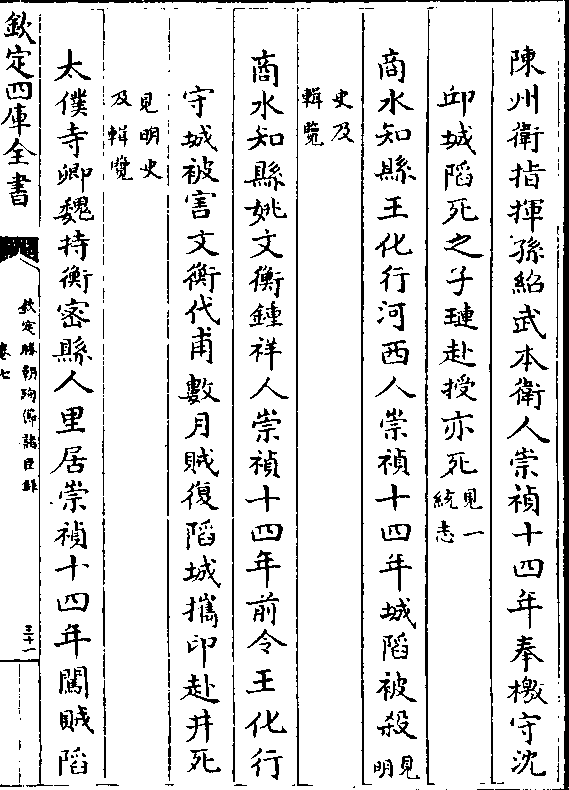 陳州衛指揮孫紹武本衛人崇禎十四年奉檄守沈
邱城䧟死之子璉赴授亦死見一
統志
商水知縣王化行河西人崇禎十四年城䧟被殺見
明
史及
輯覽
商水知縣姚文衡鍾祥人崇禎十四年前令王化行
守城被害文衡代甫數月賊復䧟城攜印赴井死
見明史
及輯覽
太僕寺卿魏持衡密縣人里居崇禎十四年闖賊䧟
欽定四庫全書
欽定勝朝殉節諸臣錄
卷七
三十一